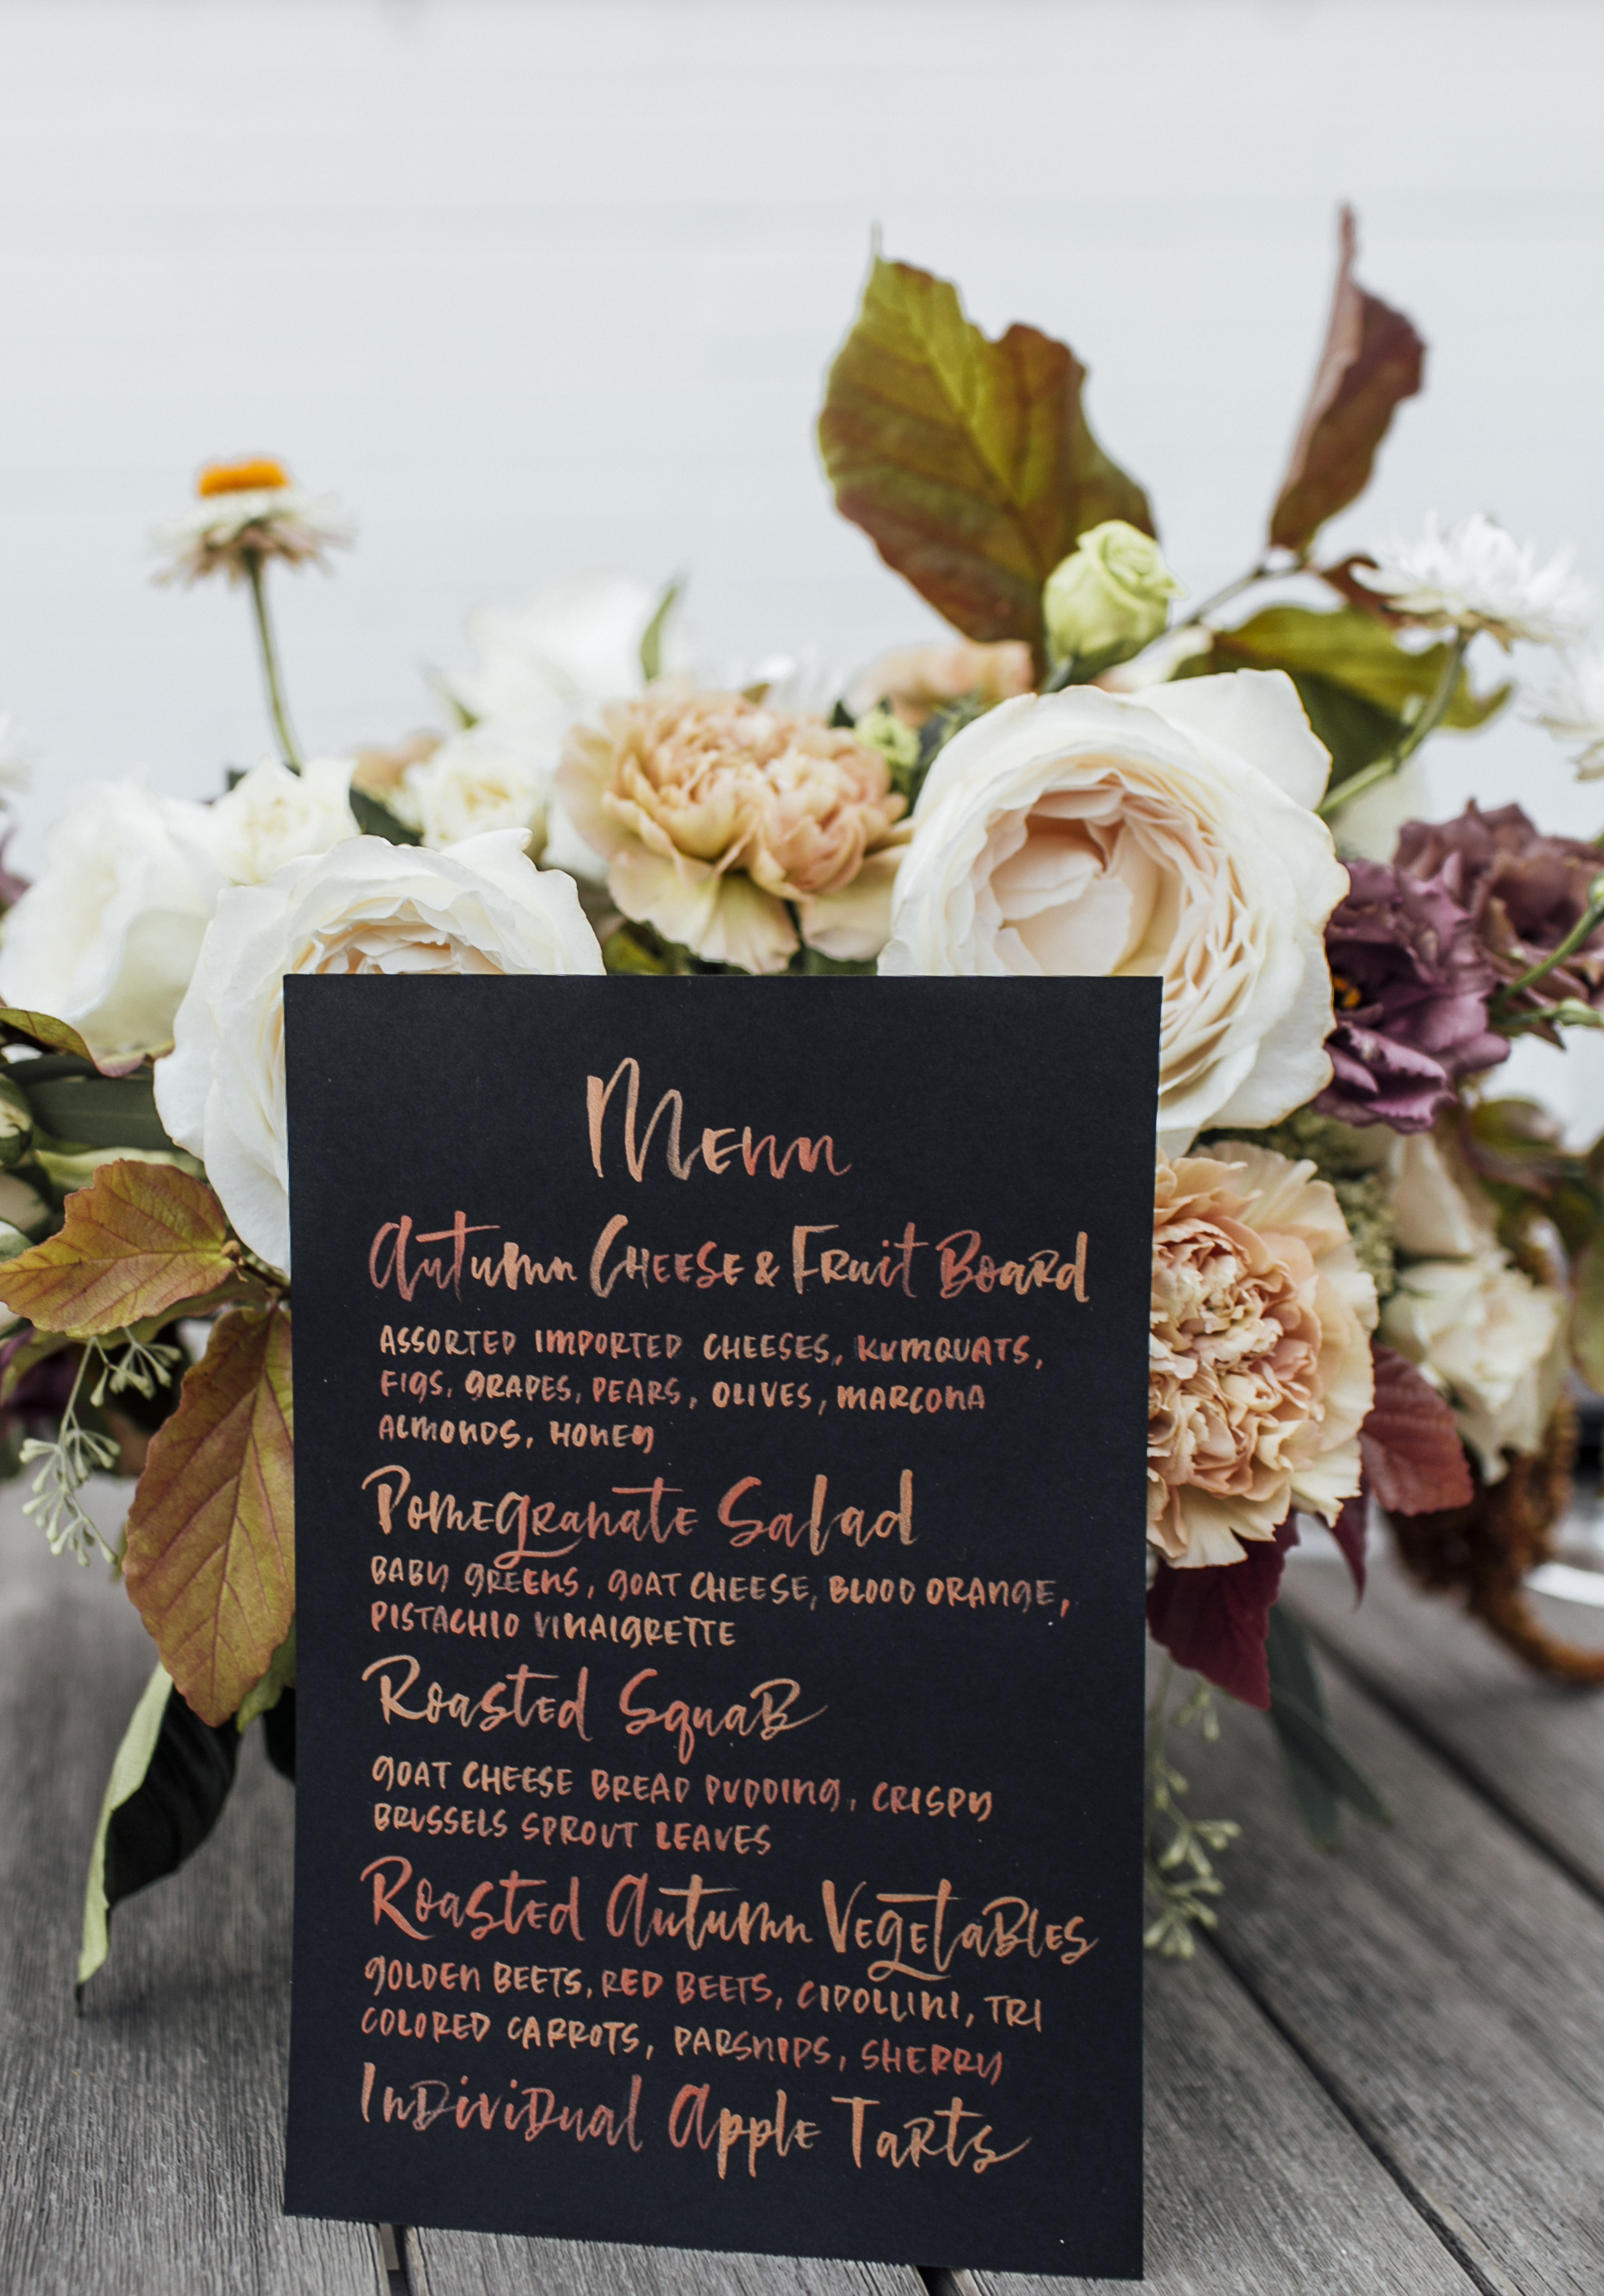 Menu
Autumn Cheese & Fruit Board
ASSORTED IMPORTED CHEESES, KUMQUATS,
FIGS, GRAPES, PEARS, OLIVES, MARCONA
ALMONDS, HONEY
Pomegranate Salad
BABY GREENS, GOAT CHEESE, BLOOD ORANGE,
PISTACHIO VINAIGRETTE
Roasted Squab
GOAT CHEESE BREAD PUDDING, CRISPY
BRUSSELS SPROUT LEAVES
Roasted Autumn Vegetables
GOLDEN BEETS, RED BEETS, CIPOLLINI, TRI
COLORED CARROTS, PARSNIPS, SHERRY
Individual Apple Tarts